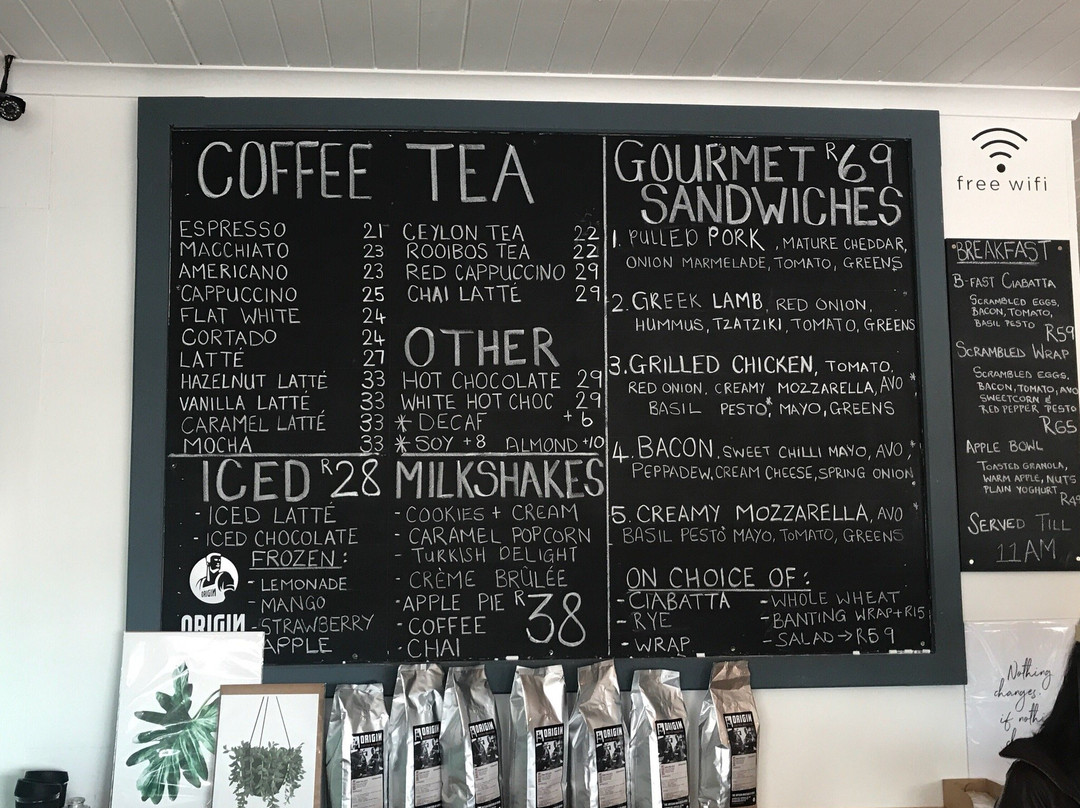 COFFEE TEA
ESPRESSO 21
MACCHIATO 23
AMERICANO 23
CAPPUCCINO 25
FLAT WHITE 24
CORTADO 24
LATTÉ 27
HAZELNUT LATTÉ 33
VANILLA LATTÉ 33
CARAMEL LATTÉ 33
MOCHA 33
CEYLON TEA 22
ROOIBOS TEA 22
RED CAPPUCCINO 29
CHAI LATTÉ 29
OTHER
HOT CHOCOLATE 29
WHITE HOT CHOC 29
* DECAF +6
* SOY +8 ALMOND +10
ICED R28
- ICED LATTÉ
- ICED CHOCOLATE
FROZEN:
- LEMONADE
- MANGO
- STRAWBERRY
APPLE
ORIGIN
ORIGIN
MILKSHAKES
- COOKIES + CREAM
- CARAMEL POPCORN
- TURKISH DELIGHT
- CRÈME BRÛLÉE
- APPLE PIE
- COFFEE
- CHAI
R38
GOURMET R69
SANDWICHES
1. PULLED PORK, MATURE CHEDDAR,
ONION MARMELADE, TOMATO, GREENS
2. GREEK LAMB, RED ONION,
HUMMUS, TZATZIKI, TOMATO, GREENS
3. GRILLED CHICKEN, TOMATO,
RED ONION, CREAMY MOZZARELLA, AVO*
BASIL PESTO*, MAYO, GREENS
4. BACON, SWEET CHILLI MAYO, AVO*,
PEPPADEW, CREAM CHEESE, SPRING ONION
5. CREAMY MOZZARELLA, AVO*
BASIL PESTO* MAYO, TOMATO, GREENS
ON CHOICE OF:
- CIABATTA
- RYE
- WRAP
- WHOLE WHEAT
- BANTING WRAP +R15
- SALAD → R59
free wifi
BREAKFAST
B-FAST CIABATTA
SCRAMBLED EGGS,
BACON, TOMATO,
BASIL PESTO
R59
SCRAMBLED WRAP
SCRAMBLED EGGS,
BACON, TOMATO, AVO
SWEETCORN &
RED PEPPER PESTO
R65
APPLE BOWL
TOASTED GRANOLA,
WARM APPLE, NUTS
PLAIN YOGHURT
SERVED TILL
11AM
Nothing
changes.
if
ORIGIN
ORIGIN
ORIGIN
ORIGIN
ORIGIN
ORIGIN
ORIGIN